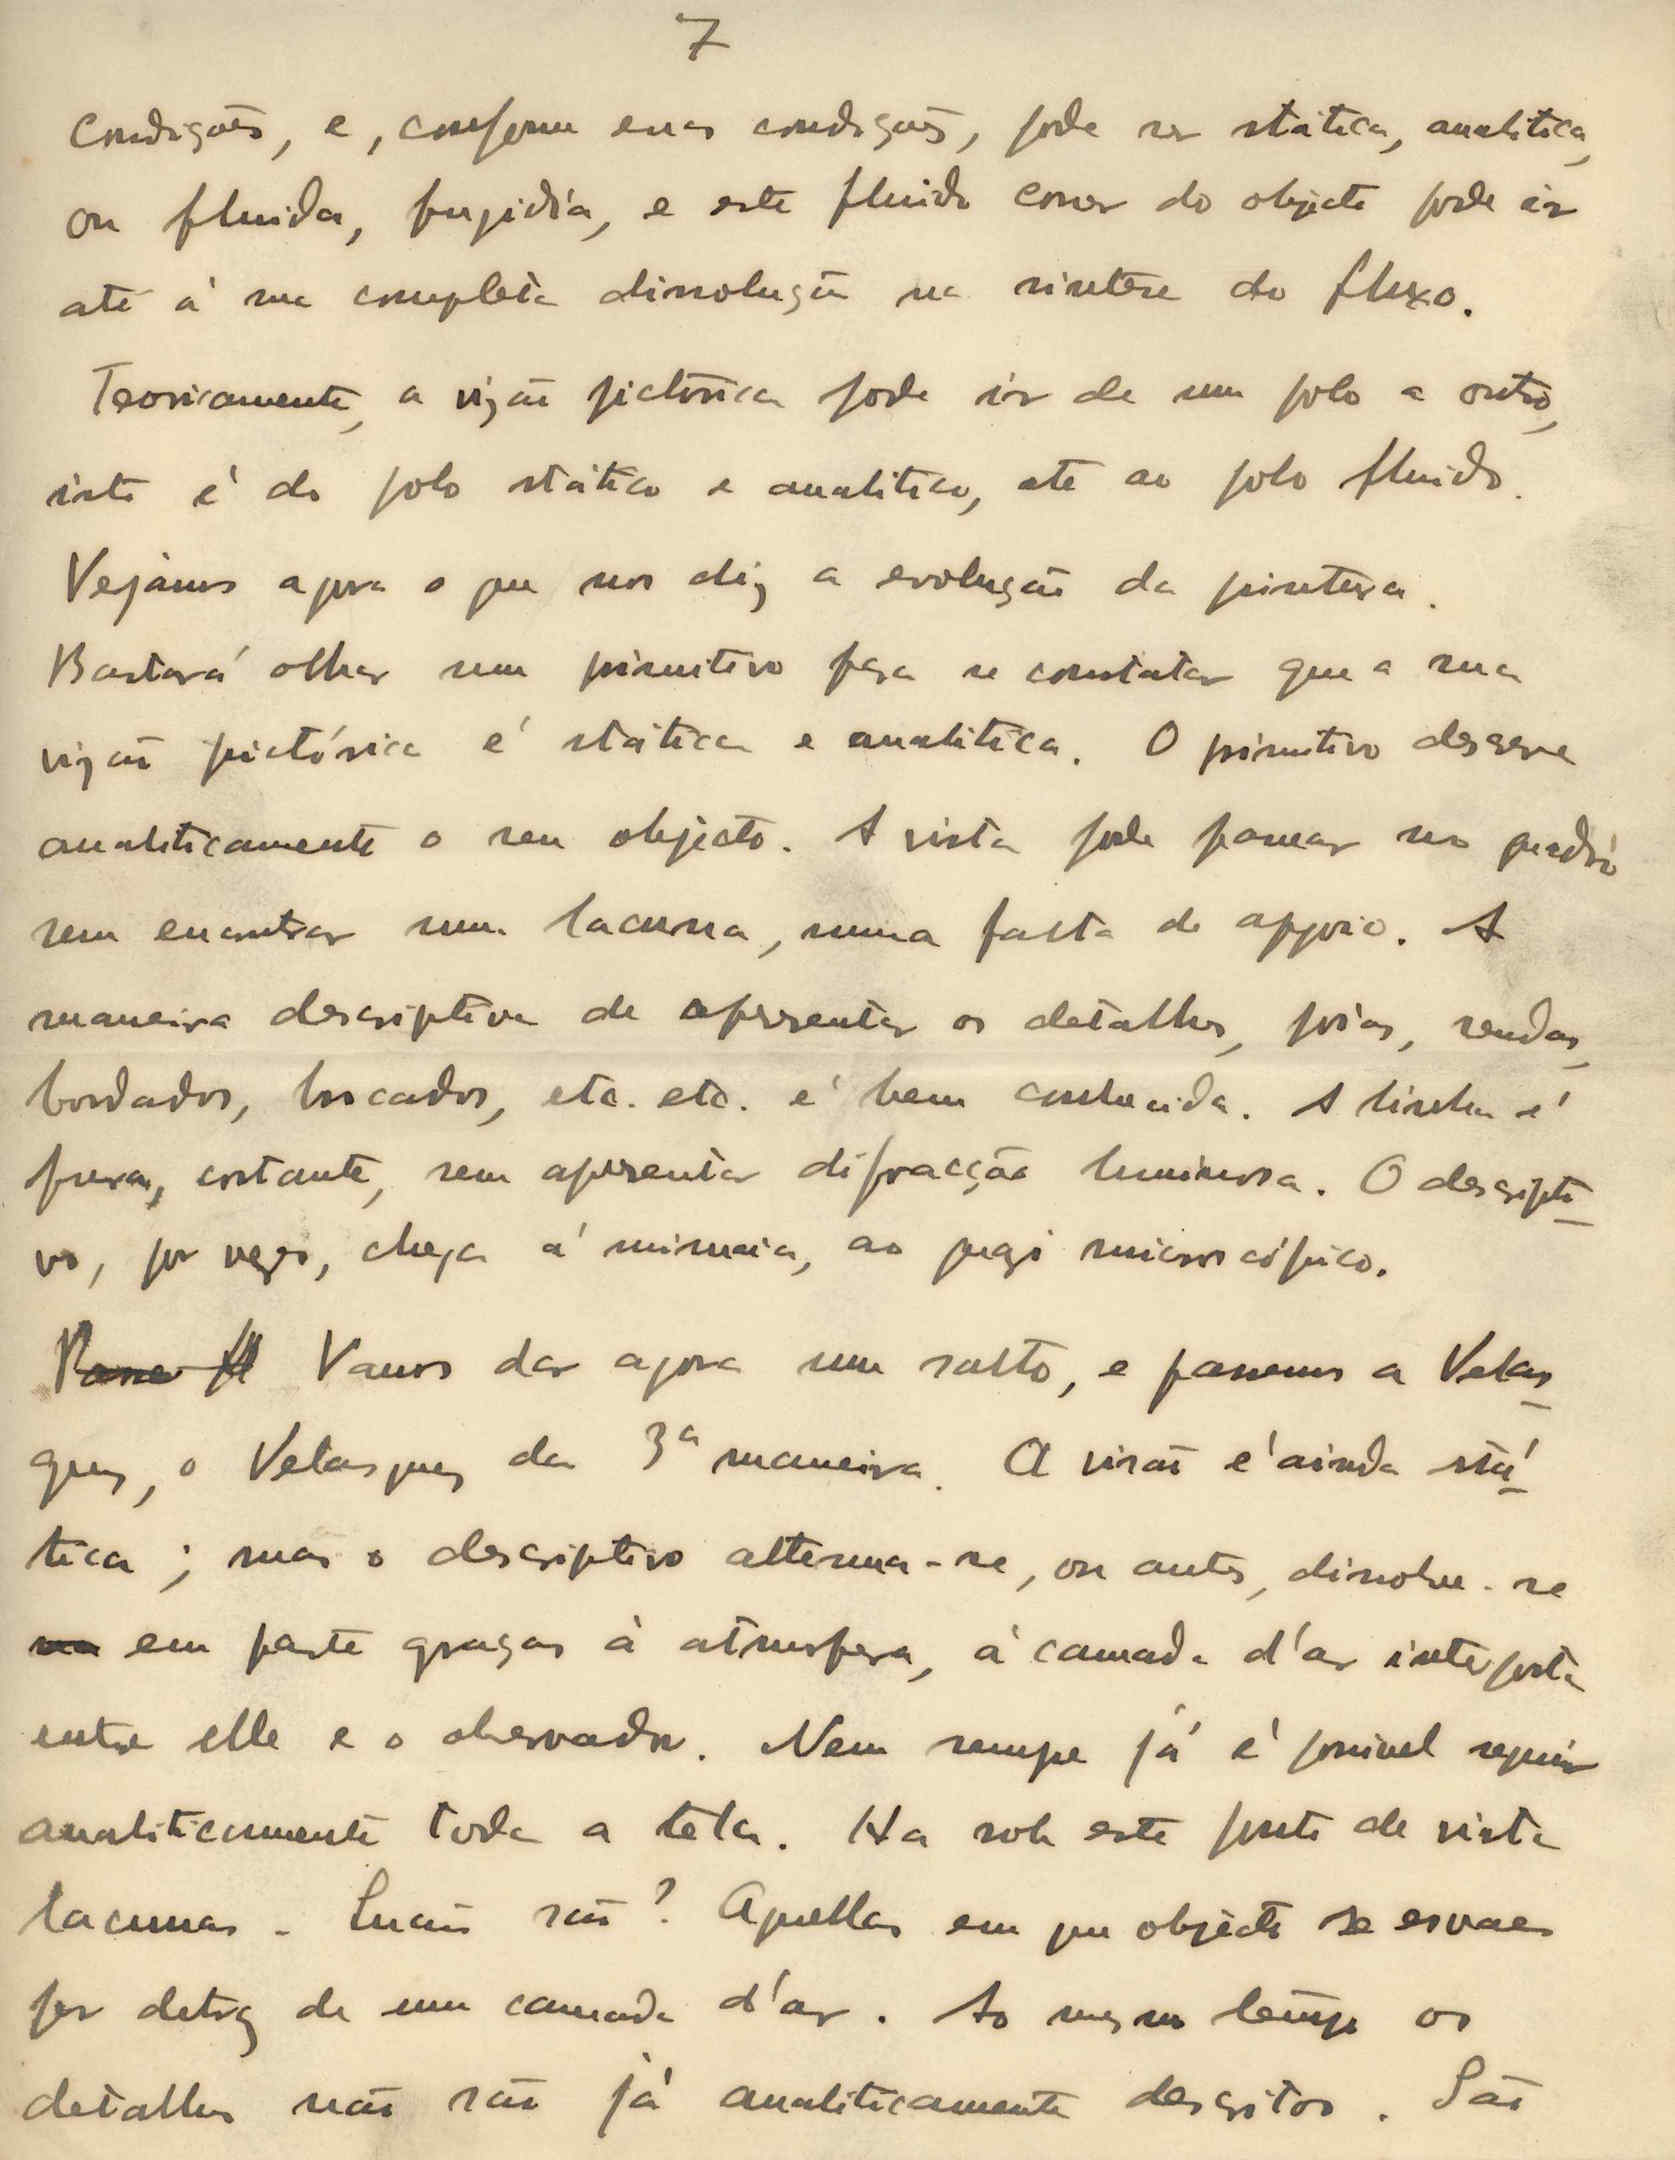 7
condições, e, conforme essas condições, pode ser stática, analitica,
ou fluida, fugidía, e este fluido correr do objecto pode ir
até á sua completa dissolução na sintese do fluxo.
Teoricamente, a vizão pictórica pode ir de um polo a outro,
isto é do polo stático e analitico, até ao polo fluido.
Vejâmos agora o que nos diz a evolução da pintura.
Bastará olhar um primitivo para se constatar que a sua
vizão pictórica é stática e analitica. O primitivo descreve
analiticamente o seu objecto. A vista pode passear no quadro
sem encontrar uma lacuna, uma falta de appoio. A
maneira descriptiva de apresentar os detalhes, joias, rendas,
bordados, brocados, etc. etc. é bem conhecida. A linha é
pura, cortante, sem apresentar difracção luminosa. O descripti-
vo, por vezes, chega á minucia, ao quazi microscópico.
Vamos dar agora um salto, e passemos a Velas-
quez, o Velasquez da 3ª maneira. A visão é ainda stá-
tica; mas o descriptivo alterna-se, ou antes, dissolve-se
em parte graças à atmosfera, á camada d'ar interposta
entre elle e o observador. Nem sempre já é possivel seguir
analiticamente toda a tela. Ha sob este ponto de vista
lacunas. Quaes são? Aquellas em que objecto se esvae
por detraz de uma camada d'ar. Ao mesmo tempo os
detalhes não são já analiticamente descritos. São